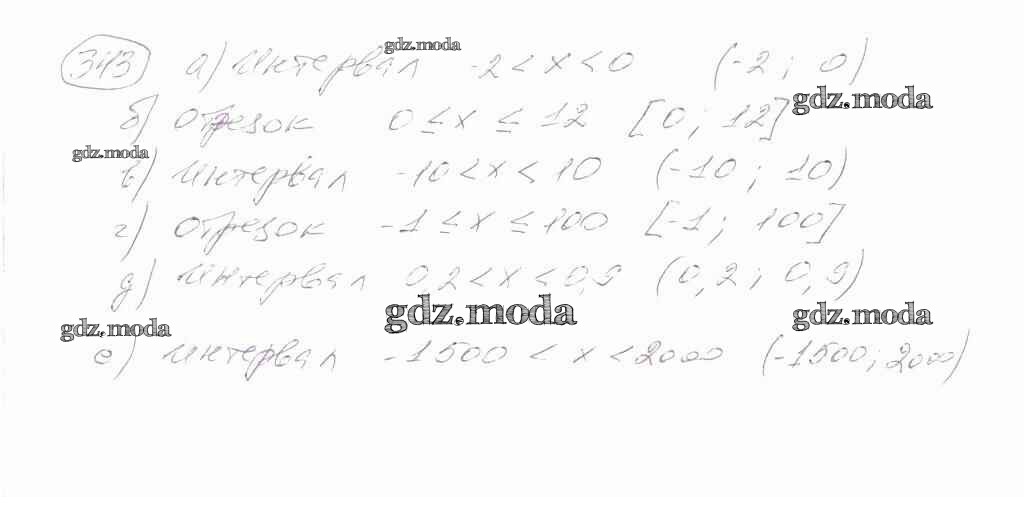 gdz.moda
343 а) Интервал -2 < x < 0 (-2; 0)
gdz.moda
б) Отрезок 0 ≤ x ≤ 12 [0; 12]
gdz.moda
в) Интервал -10 < x < 10 (-10; 10)
г) Отрезок -1 ≤ x ≤ 100 [-1; 100]
д) Интервал 0,2 < x < 0,9 (0,2; 0,9)
gdz.moda gdz.moda gdz.moda
е) Интервал -1500 < x < 2000 (-1500; 2000)